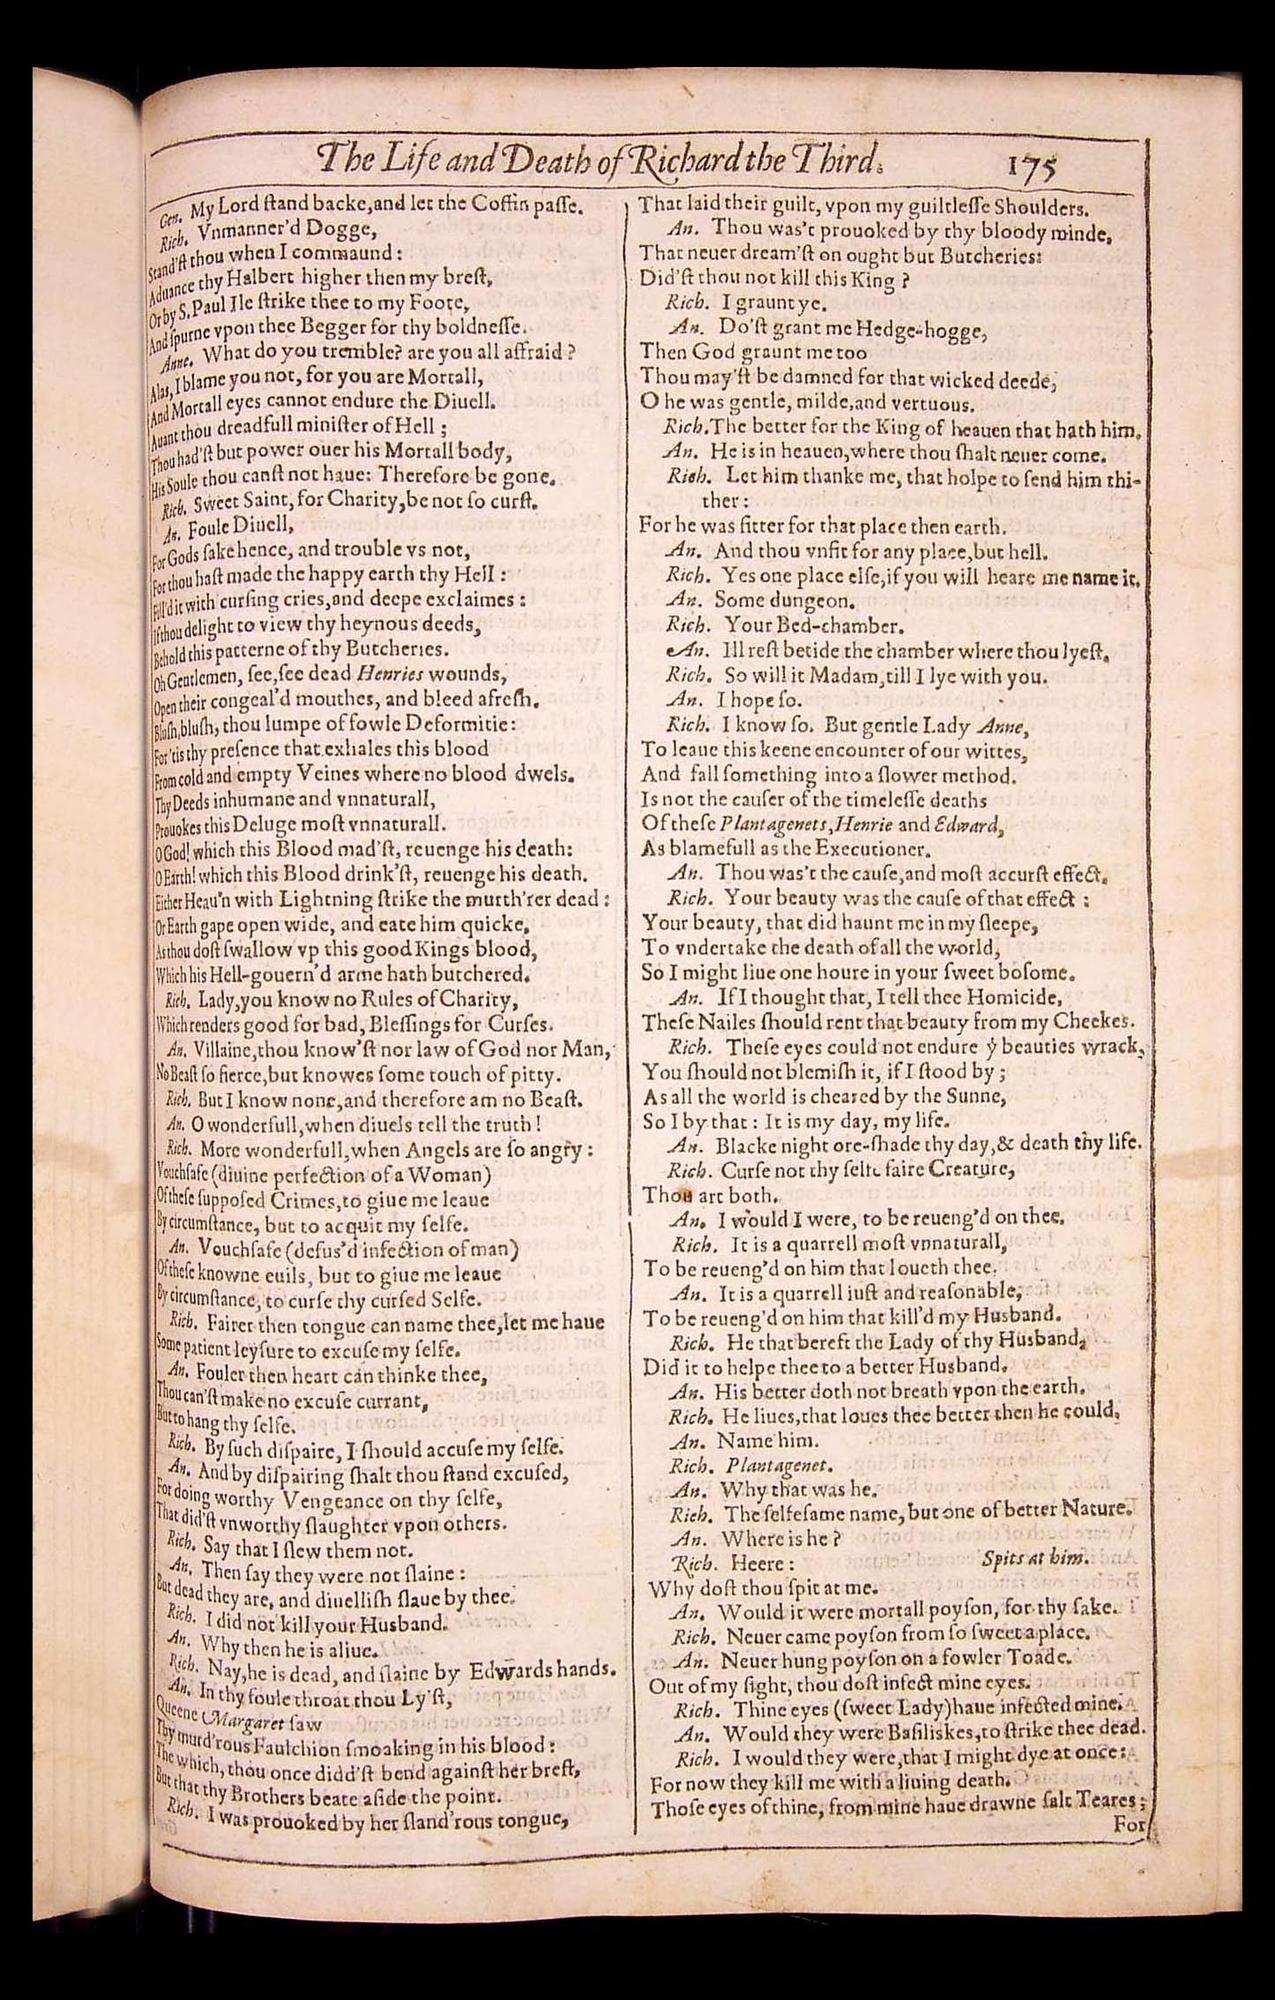 The Life and Death of Richard the Third. 175
Gen. My Lord ſtand backe,and let the Coffin paſſe.
Rich. Vnmanner'd Dogge,
Stand'ſt thou when I commaund:
Aduance thy Halbert higher then my breſt,
Or by S. Paul Ile ſtrike thee to my Foote,
And ſpurne vpon thee Begger for thy boldneſſe.
Anne. What do you tremble? are you all affraid?
Alas, I blame you not, for you are Mortall,
And Mortall eyes cannot endure the Diuell.
Auant thou dreadfull miniſter of Hell;
Thou had'ſt but power ouer his Mortall body,
His Soule thou canſt not haue: Therefore be gone.
Rich. Sweet Saint, for Charity,be not ſo curſt.
An. Foule Diuell,
For Gods ſake hence, and trouble vs not,
For thou haſt made the happy earth thy Hell:
Fill'd it with curſing cries,and deepe exclaimes:
If thou delight to view thy heynous deeds,
Behold this patterne of thy Butcheries.
Oh Gentlemen, ſee,ſee dead Henries wounds,
Open their congeal'd mouthes, and bleed afreſh.
Bluſh,bluſh, thou lumpe of fowle Deformitie:
For 'tis thy preſence that exhales this blood
From cold and empty Veines where no blood dwels.
Thy Deeds inhumane and vnnaturall,
Prouokes this Deluge moſt vnnaturall.
O God! which this Blood mad'ſt, reuenge his death:
O Earth! which this Blood drink'ſt, reuenge his death.
Either Heau'n with Lightning ſtrike the murth'rer dead:
Or Earth gape open wide, and eate him quicke,
As thou doſt ſwallow vp this good Kings blood,
Which his Hell-gouern'd arme hath butchered.
Rich. Lady,you know no Rules of Charity,
Which renders good for bad, Bleſſings for Curſes.
An. Villaine,thou know'ſt nor law of God nor Man,
No Beaſt ſo fierce,but knowes ſome touch of pitty.
Rich. But I know none,and therefore am no Beaſt.
An. O wonderfull,when diuels tell the truth!
Rich. More wonderfull,when Angels are ſo angry:
Vouchſafe (diuine perfection of a Woman)
Of theſe ſuppoſed Crimes,to giue me leaue
By circumſtance, but to acquit my ſelfe.
An. Vouchſafe (defus'd infection of man)
Of theſe knowne euils, but to giue me leaue
By circumſtance, to curſe thy curſed Selfe.
Rich. Fairer then tongue can name thee,let me haue
Some patient leyſure to excuſe my ſelfe.
An. Fouler then heart can thinke thee,
Thou can'ſt make no excuſe currant,
But to hang thy ſelfe.
Rich. By ſuch diſpaire, I ſhould accuſe my ſelfe.
An. And by diſpairing ſhalt thou ſtand excuſed,
For doing worthy Vengeance on thy ſelfe,
That did'ſt vnworthy ſlaughter vpon others.
Rich. Say that I ſlew them not.
An. Then ſay they were not ſlaine:
But dead they are, and diuelliſh ſlaue by thee.
Rich. I did not kill your Husband.
An. Why then he is aliue.
Rich. Nay,he is dead, and ſlaine by Edwards hands.
An. In thy foule throat thou Ly'ſt,
Queene Margaret ſaw
Thy murd'rous Faulchion ſmoaking in his blood:
The which, thou once didd'ſt bend againſt her breſt,
But that thy Brothers beate aſide the point.
Rich. I was prouoked by her ſland'rous tongue,
That laid their guilt, vpon my guiltleſſe Shoulders.
An. Thou was't prouoked by thy bloody minde,
That neuer dream'ſt on ought but Butcheries:
Did'ſt thou not kill this King?
Rich. I graunt ye.
An. Do'ſt grant me Hedge-hogge,
Then God graunt me too
Thou may'ſt be damned for that wicked deede,
O he was gentle, milde,and vertuous.
Rich.The better for the King of heauen that hath him.
An. He is in heauen,where thou ſhalt neuer come.
Rich. Let him thanke me, that holpe to ſend him thi-
ther:
For he was fitter for that place then earth.
An. And thou vnfit for any place,but hell.
Rich. Yes one place elſe,if you will heare me name it.
An. Some dungeon.
Rich. Your Bed-chamber.
An. Ill reſt betide the chamber where thou lyeſt.
Rich. So will it Madam,till I lye with you.
An. I hope ſo.
Rich. I know ſo. But gentle Lady Anne,
To leaue this keene encounter of our wittes,
And fall ſomething into a ſlower method.
Is not the cauſer of the timeleſſe deaths
Of theſe Plantagenets,Henrie and Edward,
As blamefull as the Executioner.
An. Thou was't the cauſe,and moſt accurſt effect.
Rich. Your beauty was the cauſe of that effect:
Your beauty, that did haunt me in my ſleepe,
To vndertake the death of all the world,
So I might liue one houre in your ſweet boſome.
An. If I thought that, I tell thee Homicide,
Theſe Nailes ſhould rent that beauty from my Cheekes.
Rich. Theſe eyes could not endure ẏ beauties wrack,
You ſhould not blemiſh it, if I ſtood by;
As all the world is cheared by the Sunne,
So I by that: It is my day, my life.
An. Blacke night ore-ſhade thy day,& death thy life.
Rich. Curſe not thy ſelfe faire Creature,
Thou art both.
An. I would I were, to be reueng'd on thee.
Rich. It is a quarrell moſt vnnaturall,
To be reueng'd on him that loueth thee.
An. It is a quarrell iuſt and reaſonable,
To be reueng'd on him that kill'd my Husband.
Rich. He that bereft the Lady of thy Husband,
Did it to helpe thee to a better Husband.
An. His better doth not breath vpon the earth.
Rich. He liues,that loues thee better then he could.
An. Name him.
Rich. Plantagenet.
An. Why that was he.
Rich. The ſelfeſame name,but one of better Nature.
An. Where is he?
Rich. Heere: Spits at him.
Why doſt thou ſpit at me.
An. Would it were mortall poyſon, for thy ſake.
Rich. Neuer came poyſon from ſo ſweet a place.
An. Neuer hung poyſon on a fowler Toade.
Out of my ſight, thou doſt infect mine eyes.
Rich. Thine eyes (ſweet Lady)haue infected mine.
An. Would they were Baſiliskes,to ſtrike thee dead.
Rich. I would they were,that I might dye at once:
For now they kill me with a liuing death.
Thoſe eyes of thine, from mine haue drawne ſalt Teares;
For